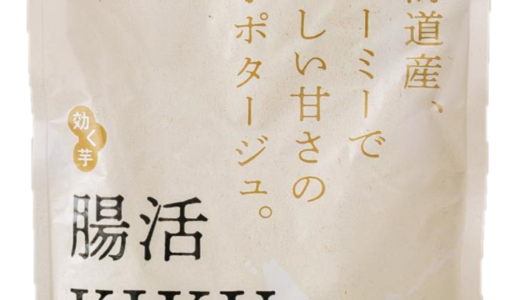 海道産、
ーミーで
しい甘さの
ポタージュ。
効く芋
腸活
KIKU